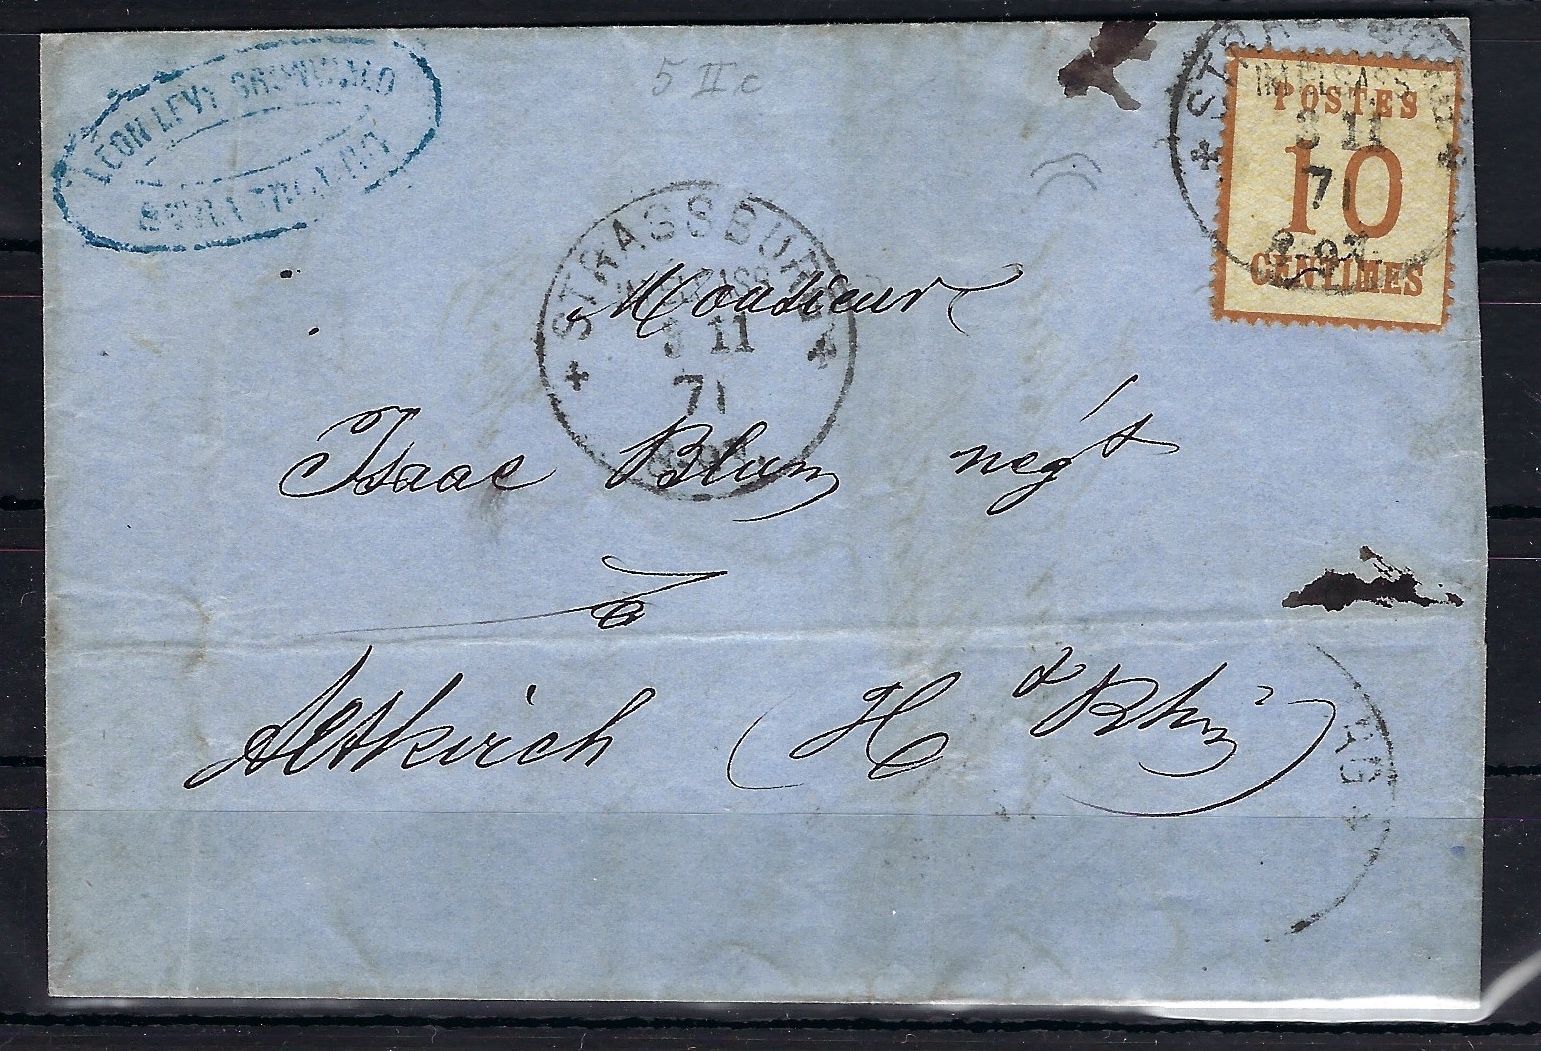 LÉON LEVY
5 II c
STRASSBURG
IM ELSASS
3 11
71
POSTES
10
CENTIMES
STRASSBURG
3 11
71
Monsieur
Isaac Blum négt
à
Altkirch (Ht Rhin)